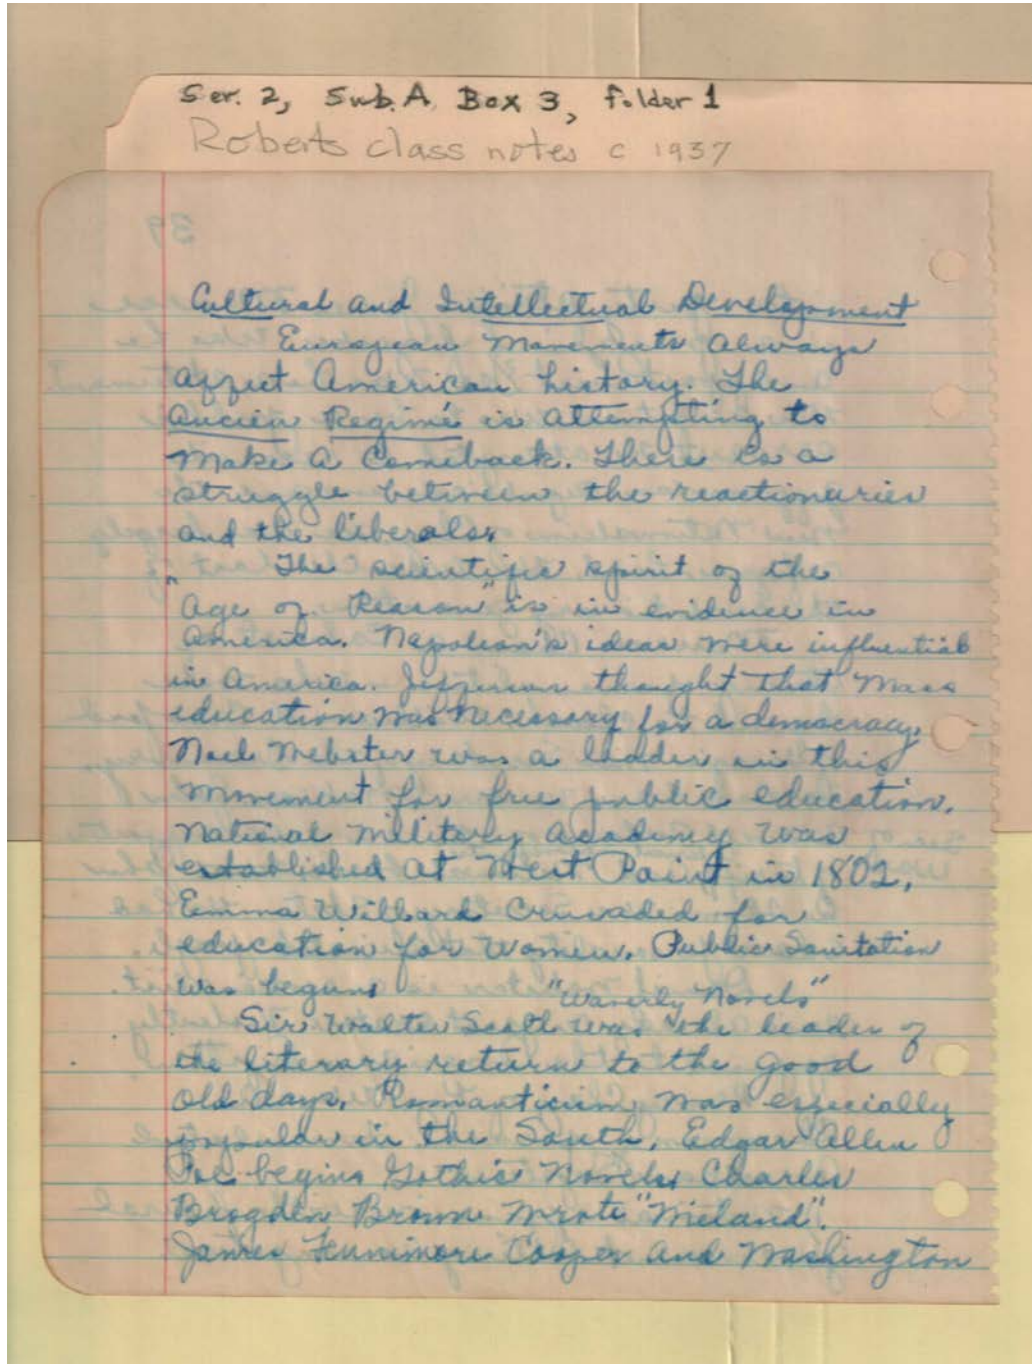 Ser. 2, Sub. A Box 3, folder 1
Roberts class notes c 1937
39
Cultural and Intellectual Development
European Movements Always
affect American history. The
Ancien Regimé is attempting to
Make a Comeback. There is a
struggle between the reactionaries
and the liberals.
The scientific spirit of the
"Age of Reason" is in evidence in
America. Napoleon's ideas were influential
in America. Jefferson thought that mass
education was necessary for a democracy.
Noel Webster was a leader in this
movement for free public education.
National Military Academy was
established at West Point in 1802.
Emma Willard Crusaded for
education for women. Public Sanitation
was begun.
"Waverly Novels"
Sir Walter Scott was the leader of
the literary return to the good
old days. Romanticism was especially
popular in the South. Edgar Allen
Poe begins Gothic Novels. Charles
Brogden Brown wrote "Wieland".
James Fennimore Cooper and Washington